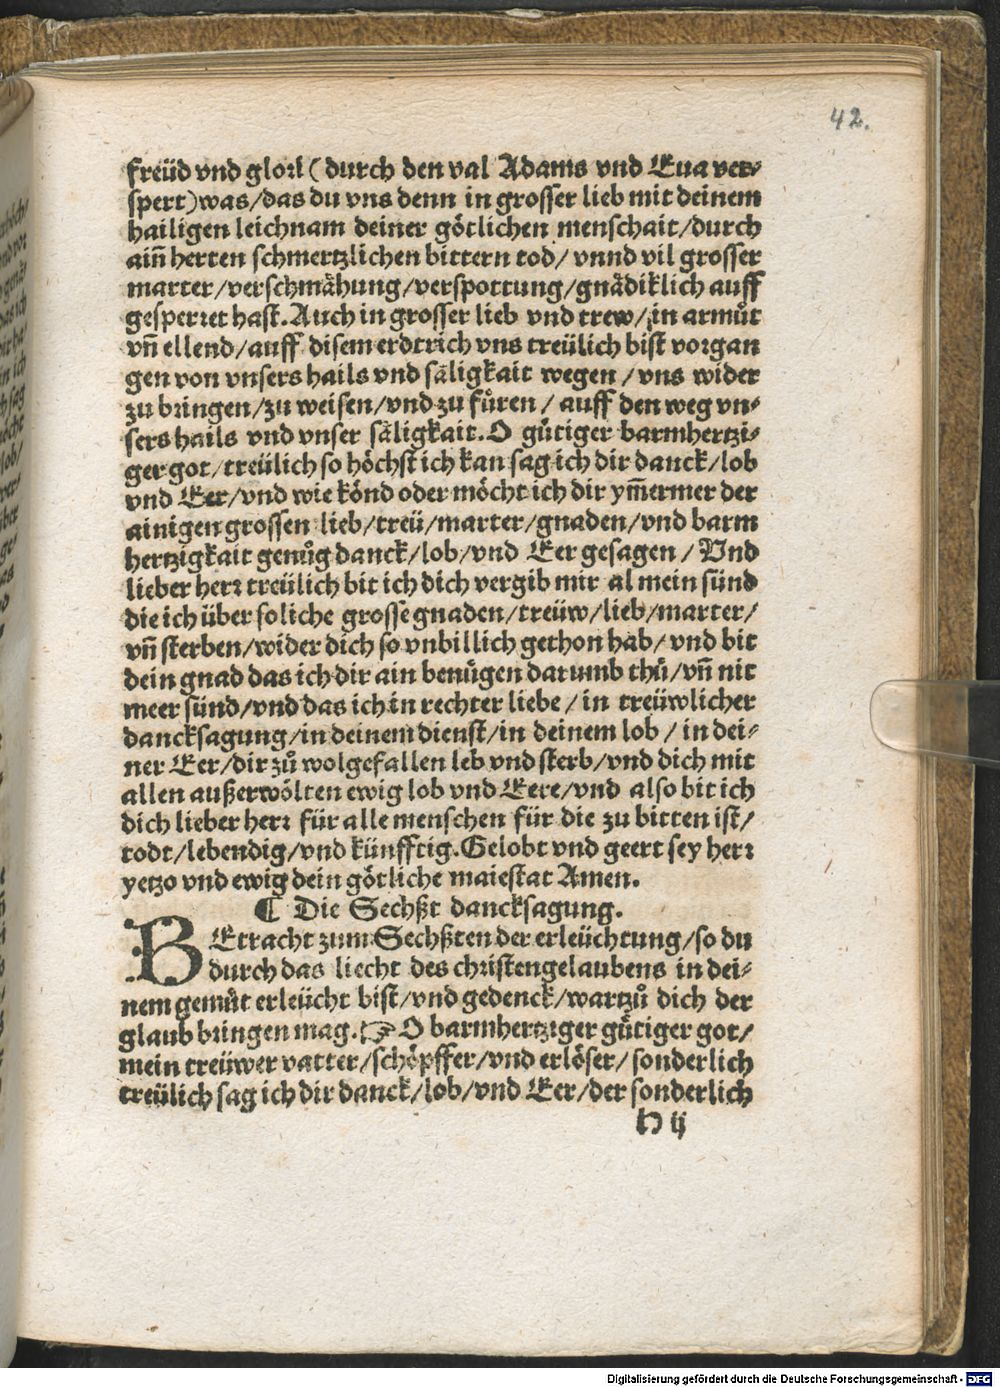 42.
freüd vnd glori (durch den val Adams vnd Eua ver⸗
spert) was/das du vns denn in grosser lieb mit deinem
hailigen leichnam deiner götlichen menschait/durch
ain̄ herten schmertzlichen bittern tod/ vnnd vil grosser
marter/verschmähung/verspottung/gnädiklich auff
gesperret hast. Auch in grosser lieb vnd trew/in armůt
vn̄ ellend/auff disem erdtrich vns treülich bist vorgan
gen von vnsers hails vnd säligkait wegen/vns wider
zu bringen/zu weisen/vnd zu fůren/ auff den weg vn⸗
sers hails vnd vnser säligkait. O gůtiger barmhertzi⸗
ger got/treülich so höchst ich kan sag ich dir danck/lob
vnd Eer/vnd wie könd oder möcht ich dir ym̄ermer der
ainigen grossen lieb/treü/marter/gnaden/vnd barm
hertzigkait genůg danck/lob/vnd Eer gesagen/ Vnd
lieber herr treülich bit ich dich vergib mir al mein sünd
die ich über soliche grosse gnaden/treüw/lieb/marter/
vn̄ sterben/wider dich so vnbillich gethon hab/ vnd bit
dein gnad das ich dir ain benůgen darumb thů/vn̄ nit
meer sünd/vnd das ich in rechter liebe/ in treüwlicher
dancksagung/in deinem dienst/in deinem lob/ in dei⸗
ner Eer/dir zů wolgefallen leb vnd sterb/vnd dich mit
allen außerwölten ewig lob vnd Eere/vnd also bit ich
dich lieber herr für alle menschen für die zu bitten ist/
todt/lebendig/vnd künfftig. Gelobt vnd geert sey herr
yetzo vnd ewig dein götliche maiestat Amen.
¶ Die Sechßt dancksagung.
BEtracht zum Sechßten der erleüchtung/so du
durch das liecht des christengelaubens in dei⸗
nem gemůt erleücht bist/vnd gedenck/wartzů dich der
glaub bringen mag. ☞ O barmhertziger gůtiger got/
mein treüwer vatter/schöpffer/vnd erlöser/ sonderlich
treülich sag ich dir danck/lob/vnd Eer/der sonderlich
h ij
Digitalisierung gefördert durch die Deutsche Forschungsgemeinschaft - DFG